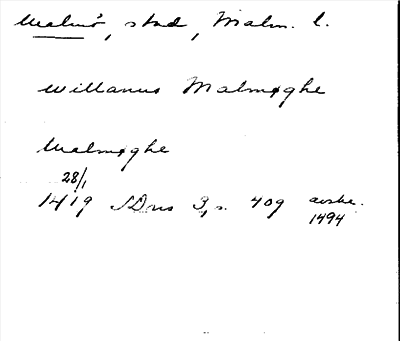 Malmö, stad, Malm. l.
Willanus Malmøghe
Malmøghe
28/1
1419 SDns 3, s. 409 avskr.
1494